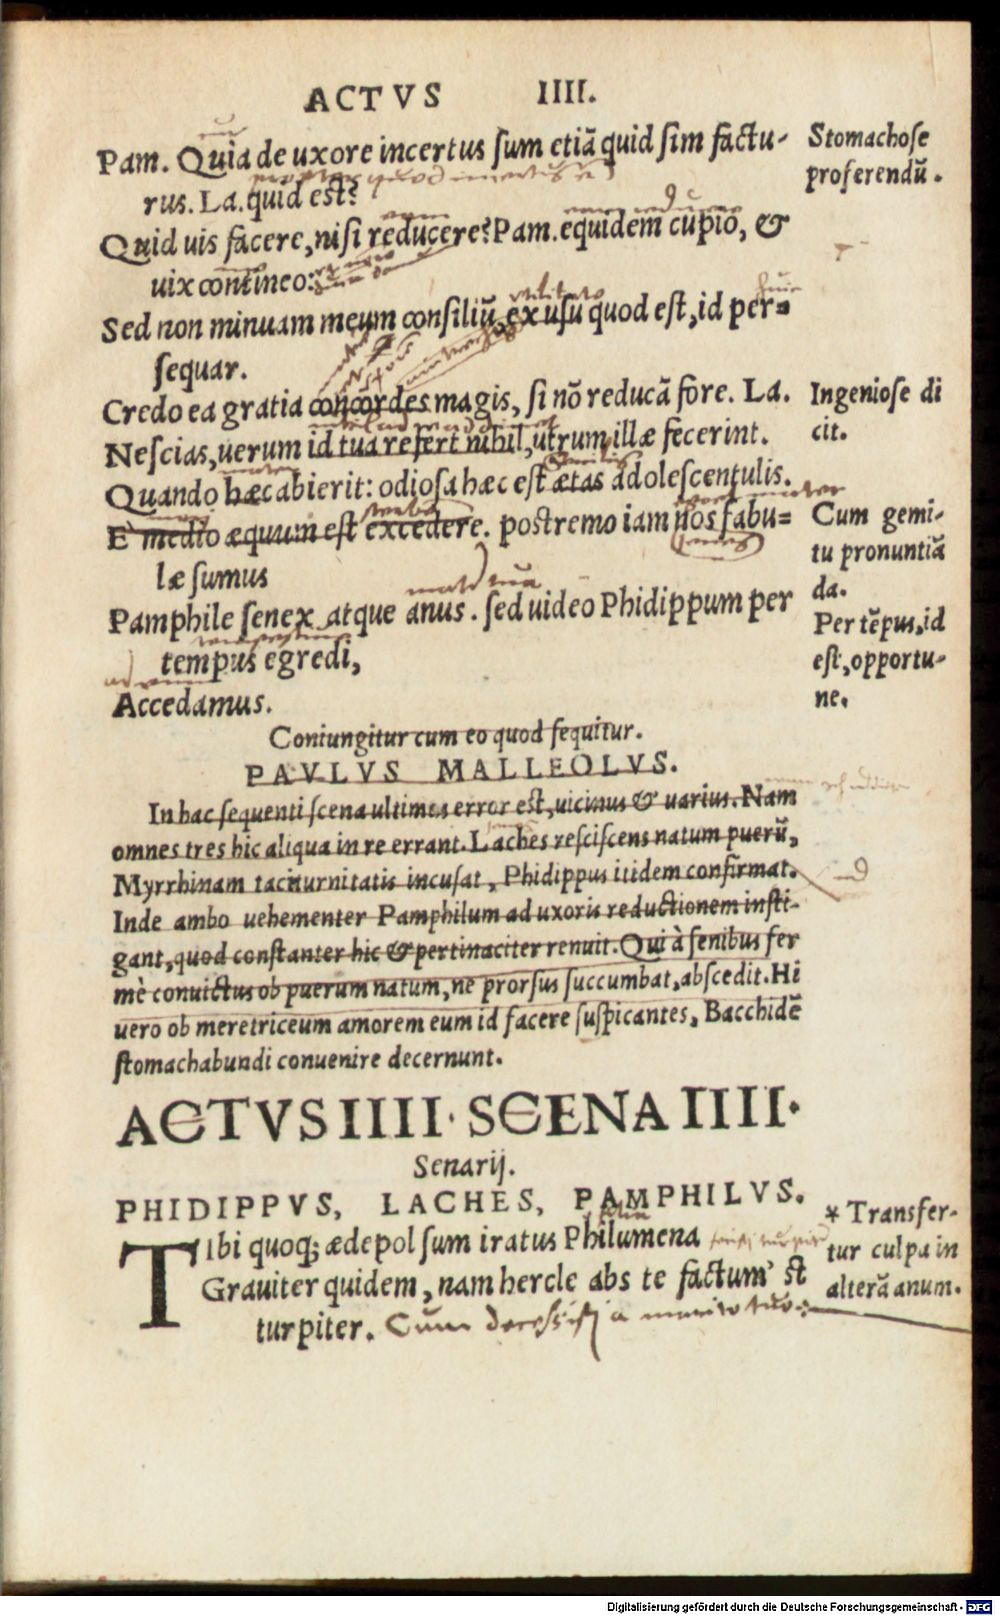 ACTVS IIII.
Pam. Quia de uxore incertus sum etiā quid sim factu-
rus. La. quid est?
Quid uis facere, nisi reducere? Pam. equidem cupio, &
uix contineo:
Sed non minuam meum consiliũ, ex usu quod est, id per=
sequar.
Credo ea gratia concordes magis, si nō reducā fore. La.
Nescias, uerum id tua refert nihil, utrum illæ fecerint.
Quando hæc abierit: odiosa hæc est ætas adolescentulis.
E medio æquum est excedere. postremo iam nos fabu=
læ sumus
Pamphile senex atque anus. sed uideo Phidippum per
tempus egredi,
Accedamus.
Stomachose
proferendũ.
Ingeniose di
cit.
Cum gemi-
tu pronuntiā
da.
Per tẽpus, id
est, opportu-
ne.
Coniungitur cum eo quod sequitur.
PAVLVS MALLEOLVS.
In hac sequenti scena ultimus error est, uicinus & uarius. Nam
omnes tres hic aliqua in re errant. Laches resciscens natum puerũ,
Myrrhinam taciturnitatis incusat, Phidippus itidem confirmat.
Inde ambo uehementer Pamphilum ad uxoris reductionem insti-
gant, quod constanter hic & pertinaciter renuit. Qui à senibus fer
mè conuictus ob puerum natum, ne prorsus succumbat, abscedit. Hi
uero ob meretriceum amorem eum id facere suspicantes, Bacchidē
stomachabundi conuenire decernunt.
ACTVS IIII. SCENA IIII.
Senarij.
PHIDIPPVS, LACHES, PAMPHILVS.
TIbi quoq; ædepol sum iratus Philumena
Grauiter quidem, nam hercle abs te factum' st
turpiter. Cum decessisti a marito tuo
* Transfer-
tur culpa in
alterā anum.
Digitalisierung gefördert durch die Deutsche Forschungsgemeinschaft - DFG